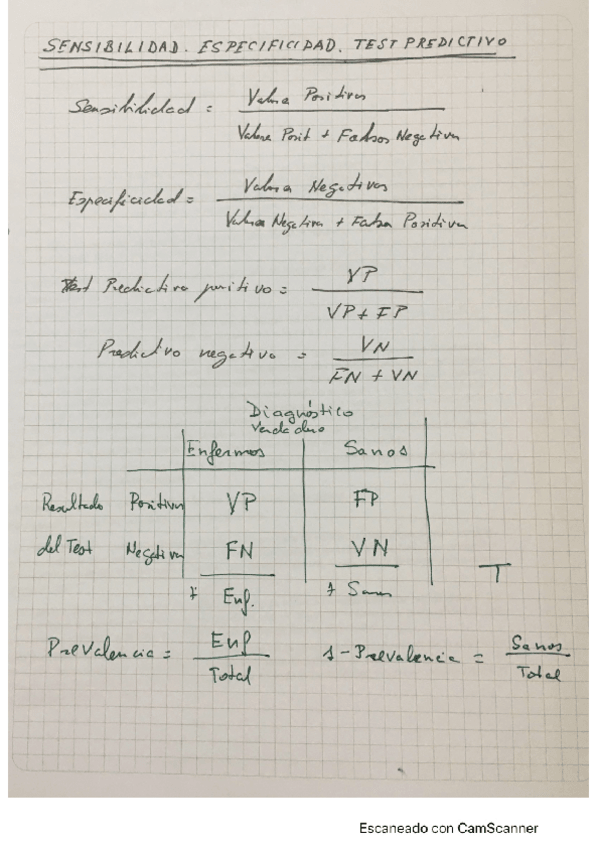 SENSIBILIDAD. ESPECIFICIDAD. TEST PREDICTIVO
Sensibilidad = Valores Positivos
Valores Posit + Falsos Negativos
Especificidad = Valores Negativos
Valores Negativos + Falsos Positivos
Test Predictivo positivo = VP
VP + FP
Predictivo negativo = VN
FN + VN
Diagnóstico
Verdadero
Enfermos Sanos
Resultado Positivo VP FP
del Test Negativo FN VN
T
Enf. Sanos
Prevalencia = Enf
Total
1 - Prevalencia = Sanos
Total
Escaneado con CamScanner